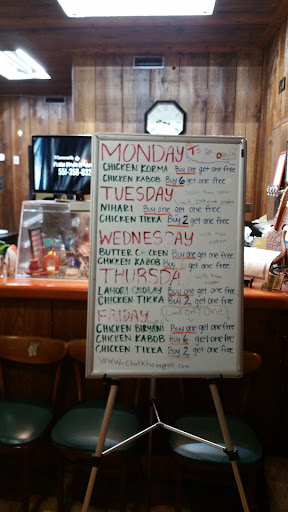 MONDAY To Go Only
CHICKEN KORMA Buy one get one free
CHICKEN KABOB Buy 6 get one free
TUESDAY
NIHARI Buy one get one free
CHICKEN TIKKA Buy 2 get one free
WEDNESDAY
BUTTER CHICKEN Buy one get one free
CHICKEN KABOB Buy get one free
THURSDA
LAHORI CHOLAY Buy one get one free
CHICKEN TIKKA Buy 2 get one free
FRIDAY
CHICKEN BIRYANI Buy one get one free
CHICKEN KABOB Buy 6 get one free
CHICKEN TIKKA Buy 2 get one free